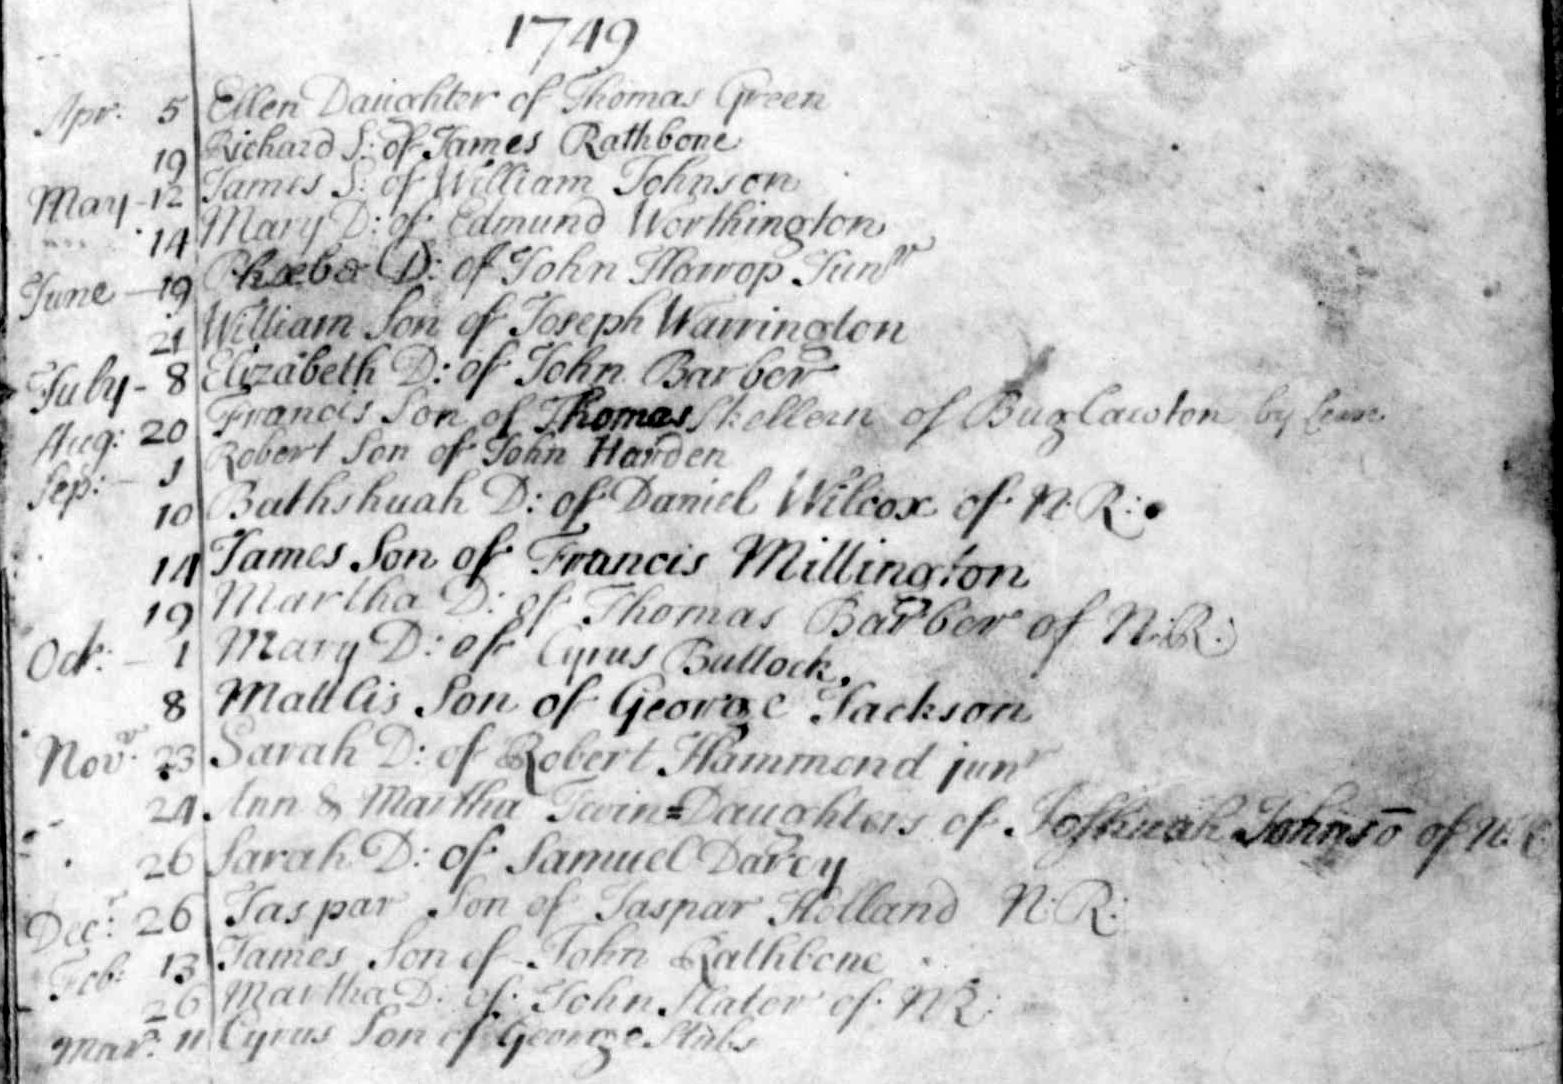 1749
Apr: 5 Ellen Daughter of Thomas Green
19 Richard S: of James Rathbone
May - 12 James S: of William Johnson
14 Mary D: of Edmund Worthington
June - 19 Phœbe D: of John Harrop Junr
21 William Son of Joseph Warrington
July - 8 Elizabeth D: of John Barber
Aug: 20 Francis Son of Thomas Skellern of Buglawton by
Sep: - 1 Robert Son of John Harden
10 Bathshuah D: of Daniel Wilcox of N: R:
14 James Son of Francis Millington
19 Martha D: of Thomas Barber of N: R:
Oct: - 1 Mary D: of Cyrus Bullock,
8 Son of George Jackson
Novr. 23 Sarah D: of Robert Hammond junr
24 Ann & Martha Twin=Daughters of Joshuah Johnsō of N:
26 Sarah D: of Samuel Darcy
Decr: 26 Jaspar Son of Jaspar Holland N: R:
Feb: 13 James Son of John Rathbone
26 Martha D: of John Slator of N R:
Mar: 11 Cyrus Son of George Stubs